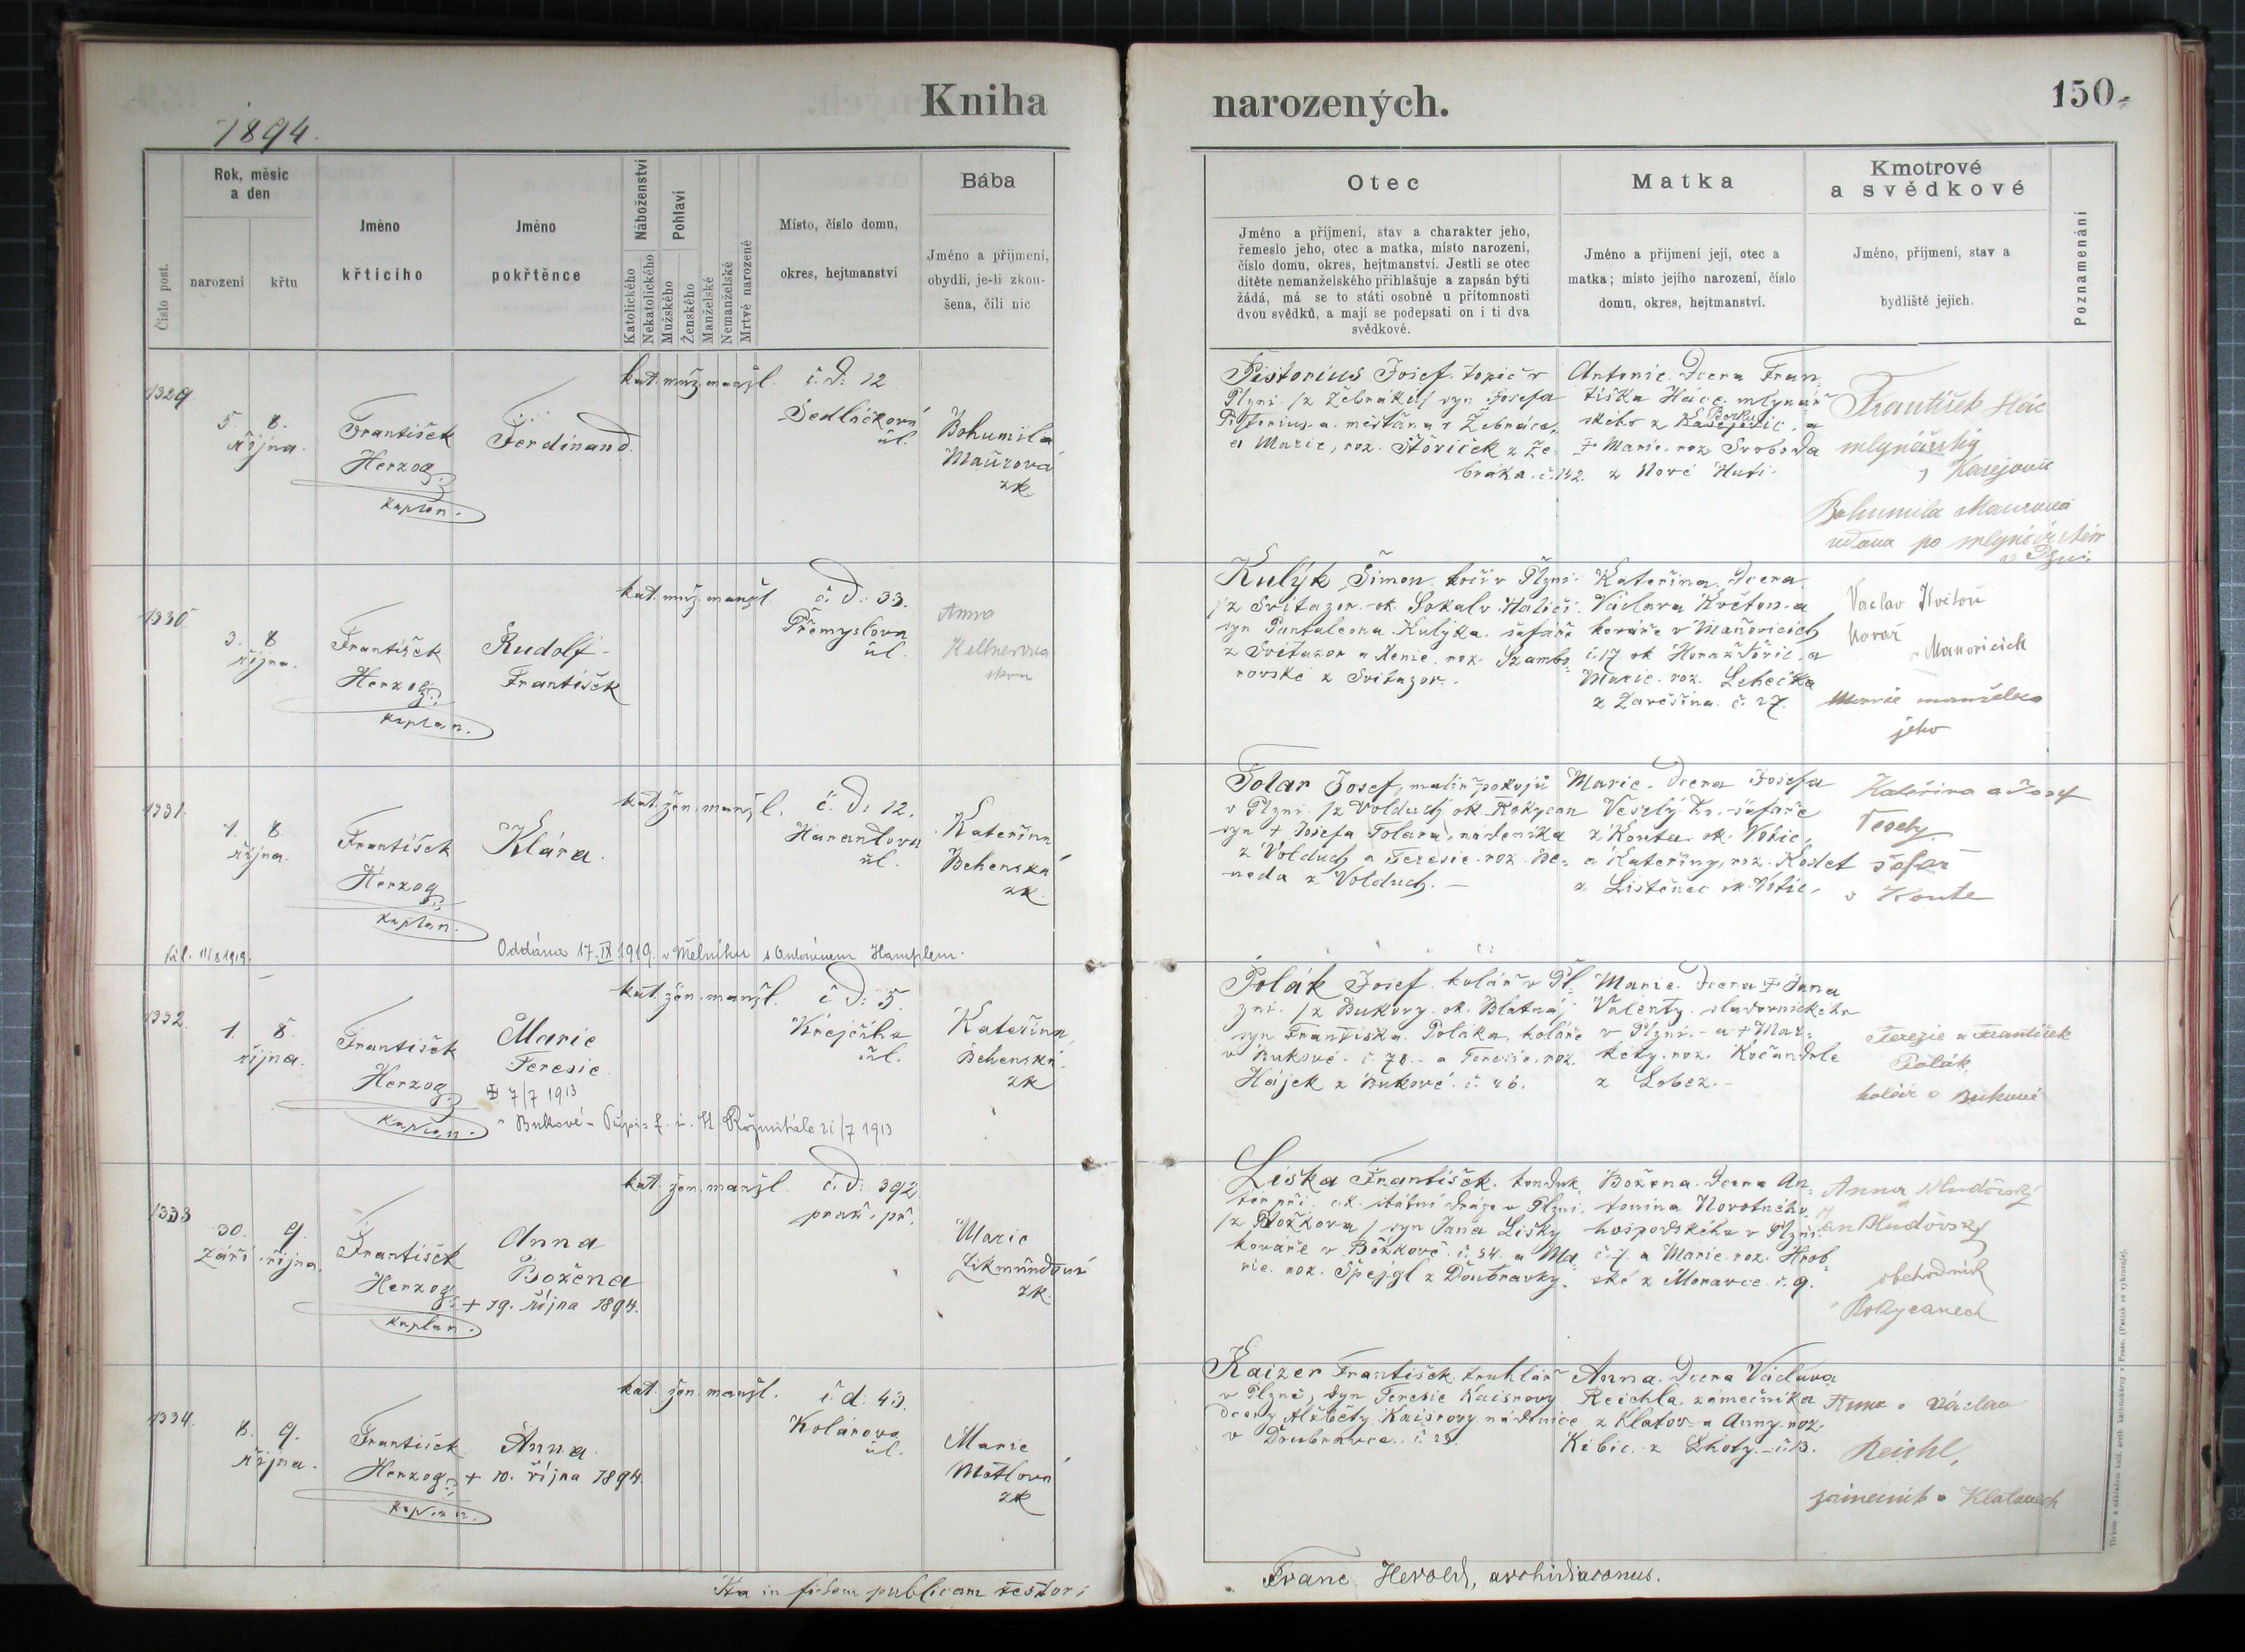 Kniha
narozených.
150.
1894.
Číslo post.
Rok, měsíc
a den
narození
křtu
Jméno
křticího
Jméno
pokřtěnce
Náboženství
Katolického
Nekatolického
Pohlaví
Mužského
Ženského
Manželské
Nemanželské
Mrtvě narozené
Místo, číslo domu,
okres, hejtmanství
Bába
Jméno a příjmení,
obydlí, je-li zkou-
šena, čili nic
Otec
Jméno a příjmení, stav a charakter jeho,
řemeslo jeho, otec a matka, místo narození,
číslo domu, okres, hejtmanství. Jestli se otec
dítěte nemanželského přihlašuje a zapsán býti
žádá, má se to státi osobně u přítomnosti
dvou svědků, a mají se podepsati on i ti dva
svědkové.
Matka
Jméno a příjmení její, otec a
matka; místo jejího narození, číslo
domu, okres, hejtmanství.
Kmotrové
a svědkové
Jméno, příjmení, stav a
bydliště jejich.
Poznamenání
1329
5. 8.
října.
František
Herzog
kaplan.
Ferdinand.
kat. muž. manžl.
č. d: 12
Sedláčkova
ul.
Bohumila
Maurová
zk.
Pistorius Josef. topič v
Plzni /z Žebráku/ syn Josefa
Pistorius a. měšťana v Žebráce,
a Marie, roz. Štöviček z Že-
bráka. č. 142.
Antonie. dcera Fran-
tiška Háić. mlynář
ského z Kasejovic. a
Borku
Marie. roz. Svoboda
z Nové Huti.
František Háić
mlynářský
z Kasejovic
Bohumila Maurová
vdova po mlynáři
v Plzni.
1330
3. 8
října.
František
Herzog
kaplan.
Rudolf-
František
kat. muž. manžl.
č. d: 33.
Přemyslova
ul.
Anna
Kellnerova
zkou
Kulýk Šimon. kočí v Plzni.
/z Svitazor. ok. Sokal v Haliči.
syn Pantaleona Kulýka. šafáře
z Svitazor a Xenie. roz. Szambo-
rovské z Svitazor.
Kateřina. dcera
Václava Květon. a
kováře v Maňovicích
č. 17 ok Horažďovic. a
Marie. roz. Lehečka
z Zavěšína. č. 27.
Vaclav Květoň
kovář
v Maňovicích
Marie manželka
jeho
1331.
7. 8.
října.
František
Herzog
kaplan.
Klára.
kat. žen. manžl.
č. d: 12.
Harantova
ul.
Kateřina
Behenská
zk.
Tolar Josef, malíř pokojů
v Plzni. /z Volduch ok. Rokycan
syn + Josefa Tolara, nádeníka
z Volduch a Teresie. roz. Be-
neda z Volduch. —
Marie. dcera Josefa
Veselý ho. šafáře
z Kouta. ok. Votic.
a Kateřiny, roz. Kodet
z Listěnec ok. Votic.
Kateřina a Josef
Veselý
šafář
v Koutě
11/8 1919.
Oddána 17. IX 1919. v Mělníku s Antonínem Hamplem.
1332.
1. 8.
října.
František
Herzog
kaplan.
Marie
Teresie.
7/7 1913
v Bukové – 21/7 1913
kat. žen. manžl.
č. d: 5.
Krejčího
ul.
Kateřina
Behenská.
zk
Polák Josef. kolář v Pl-
zni. /z Bukovy. ok. Blatná/
syn Františka. Poláka, koláře
v Bukové. č. 70. a Teresie. roz.
Hájek z Bukové. č. 46.
Marie. dcera Jana
Valenty. sladovnického
v Plzni. a + Mar-
kéty. roz. Kočandrle
z Lobez. —
Terezie a František
Polák
kolář v Bukové
1333
30. 9.
září. října.
František
Herzog
kaplan.
Anna
Božena
+ 19. října 1894.
kat. žen. manžl.
č. d: 392.
praž. př.
Marie
Zikmundová
zk.
Liška František. konduk-
tér při c.k. státní dráze v Plzni.
/z Božkova / syn Jana Lišky
kováře v Božkově. č. 54. a Ma-
rie. roz. Špejgl z Doubravky.
Božena. dcera An-
tonína Novotného
hospodského v Plzni.
č. 7. a Marie roz. Hrob-
ské z Moravce. č. 9.
Anna Hudovský
Jan Hudovský
obchodník
v Rokycanech
1334.
8. 9.
října.
František
Herzog
kaplan.
Anna.
+ 10. října 1894
kat. žen. manžl.
č. d: 43.
Kolárova
ul.
Marie
Motlová
zk
Kaizer František. truhlář
v Plzně, syn Teresie Kaisrovy
dcery Alžběty Kaisrovy nádenice
v Doubravce. č. 23.
Anna. dcera Václava
Reichla, zámečníka
z Klatov. a Anny. roz.
Kibic. z Lhoty. – č. 13.
Anna a Václav
Reichl,
zámečník v Klatovech
Ita in fidem publicam testor:
Franc. Herold, archidiaconus.